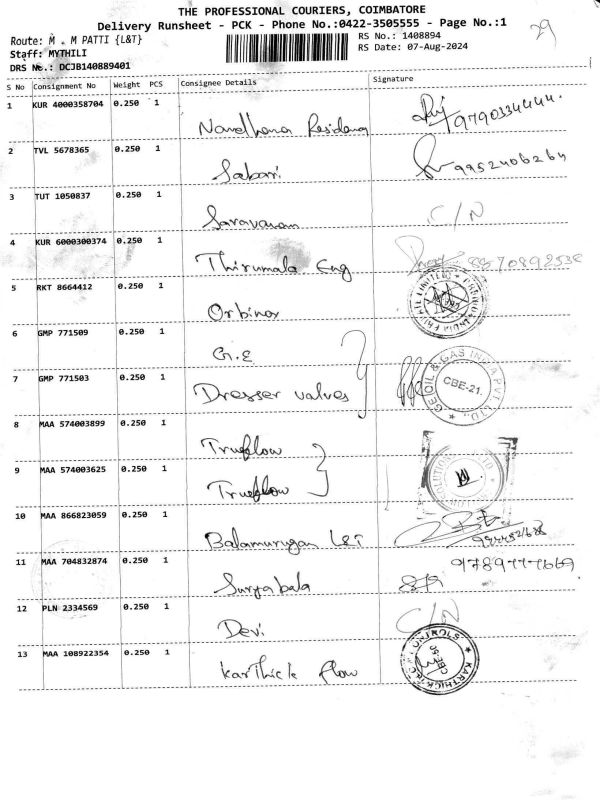 THE PROFESSIONAL COURIERS, COIMBATORE
Delivery Runsheet - PCK - Phone No.:0422-3505555 - Page No.:1
29
Route: M . M PATTI {L&T}
RS No.: 1408894
Staff: MYTHILI
RS Date: 07-Aug-2024
DRS No.: DCJB140889401
S No Consignment No Weight PCS Consignee Details Signature
1 KUR 4000358704 0.250 1 Nandhana Residency 9790334444.
2 TVL 5678365 0.250 1 Sabari 9952406264
3 TUT 1050837 0.250 1 Saravanan C/N
4 KUR 6000300374 0.250 1 Thirumala Eng 8870892538
5 RKT 8664412 0.250 1 Orbinox
INDIA PRIVATE LIMITED
6 GMP 771509 0.250 1 G.E
7 GMP 771503 0.250 1 Dresser valves
GE OIL & GAS INDIA PVT. LTD.,
CBE-21.
8 MAA 574003899 0.250 1 Trueflow
9 MAA 574003625 0.250 1 Trueflow
10 MAA 866823059 0.250 1 Balamurugan L&T
11 MAA 704832874 0.250 1 Suryabala 9789777669
12 PLN 2334569 0.250 1 Devi C/N
13 MAA 108922354 0.250 1 Karthick flow
KARTHICK CONTROLS